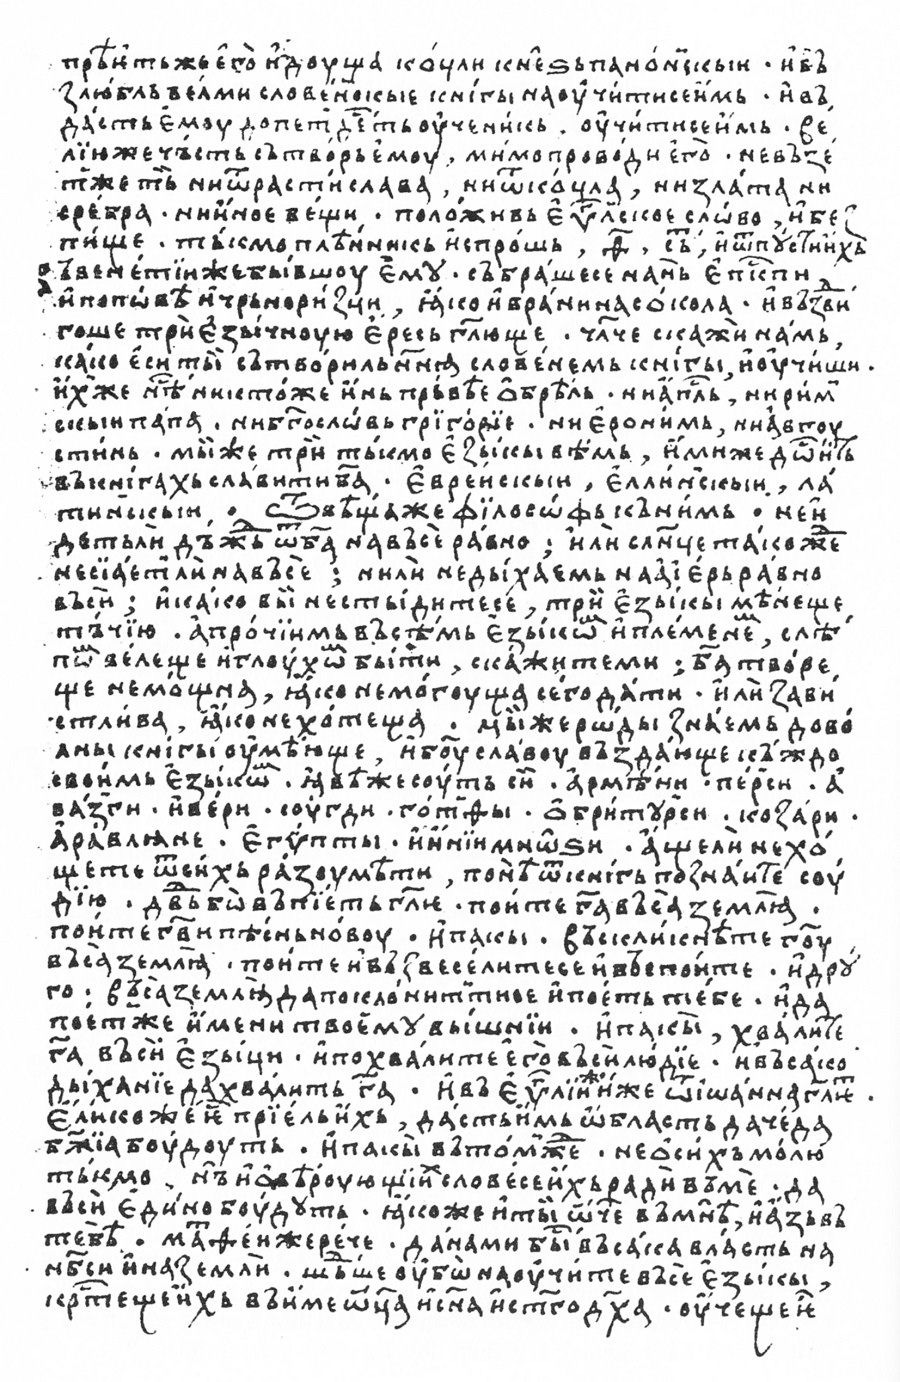 прѣѥть же ѥго идоуща коцли кнеѕь панѡнскыи · и въ
злюбль вельми словенскые книгы наоучити се имь · и въ
дасть ѥмоу до петьдеⷭ҇ть оученикь · оучити се имь · ве
лїю же чьсть сътворь ѥмоу, мимо проводи ѥго · не възе
т же тъ ни ѿ растислава, ни ѿ коцла, ни злата ни
сребра · ни иное вещи · положивь еѵⷢ҇лское слово, и без
пище · тькмо плѣнникь испрошь, ҂ѳ҃, съть, и ѿпоусти ихъ
Въ венетїи же бывшоу ѥму · събраше се на нь епⷭ҇кпи
и попѡве и чрьноризци, ꙗко и врани на сокола · и въздви
гоше триезычноую ересь гл҃юще · чл҃че скажи намь,
како ѥси ты сътвориль нн҃ꙗ словенемь книгы, и оучиши ·
ихже нѣⷭ҇ никтоже инь прьвѣе обрѣль · ни апⷭ҇ль, ни рим
скыи папа · ни бг҃ословь григорїе · ни еронимь, ни авгоу
стинь · мы же три тькмо езыкы вѣмь, имиже дⷭ҇тоить
въ книгахь славити ба҃ · еврейскыи, еллинскыи, ла
тинскыи · Ѿвѣща же фїлософь кь нимь · не и
деть ли дъждь ѿ ба҃ на въсе равно ; или слн҃це такожⷣе
не сїаеть ли на въсе ; ни ли не дыхаемь на аерь равно
въси ; и како вы не стыдите се, три езыкы мѣнеще
тъчїю · а прочїимь въсѣмь езыкѡⷨ и племенеⷨ, слѣ
пѡⷨ велеще и глоухѡⷨ быти, скажите ми ; ба҃ творе
ще немощна, ꙗко не могоуща сего дати · или зави
стлива, ꙗко не хотеща · мы же роды знаемь дово
лны книгы оумѣюще, и боу҃ славоу въздающе кьждо
своимь езыкѡⷨ · ꙗвѣ же соуть си · армѣни · перси · а
вазги · ивери · соугди · готѳы · обри · турси · козари ·
аравлꙗне · егѵпты · и инїи мнѡѕи · аще ли не хо
щете ѿ сихь разоумѣти, понѣ ѿ книгь познаите соу
дїю · двдь бо въпїеть гл҃ѥ · поите гв҃и въса землꙗ ·
поите гв҃и пѣснь новоу · и пакы · въскликнѣте гоу҃
въса землꙗ · поите и възвеселите се и въспоите · и дроу
го · въса землꙗ да поклонит ти се и поеть тебе · и да
поет же имени твоемоу вышнїи · и пакы, хвалите
га҃ въси езыци · и похвалите ѥго въси людїе · и въсако
дыханїе да хвалить га҃ · и въ еѵⷢ҇лїи же ѿ іѡанна гл҃ѥть ·
ѥликоже их прїеть ихь, дасть имь ѡбласть да чеда
бж҃їа боудоуть · и пакы въ томжⷣе · не ѡ сихъ молю
тькмо, нъ и ѡ вѣроующїих словесе ихъ ради въ ме · да
въси едино боудуть · ꙗкоже и ты ѡче въ мнѣ, и азъ въ
тебѣ · маⷮѳеи же рече · дана ми бы въсака власть на
нб҃си и на земли · шьдше оубѡ наоучите въсе езыкы,
крⷭ҇теще ихь въ име ѡц҃а и сн҃а и ст҃го дх҃а · оучеще ѥ